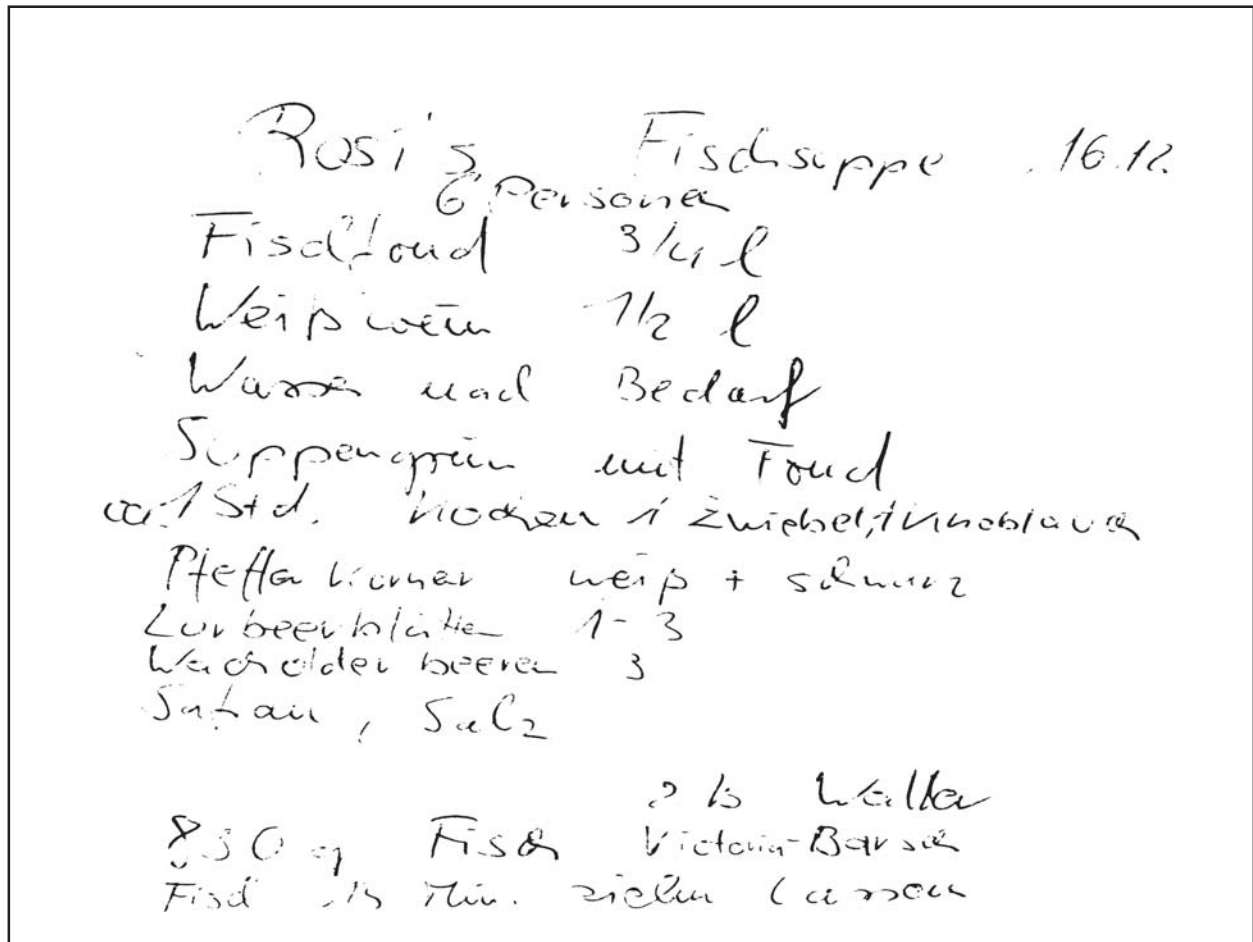 Rosi's Fischsuppe 16.12.
6 Personen
Fischfond 3/4 l
Weißwein 1/2 l
Wasser nach Bedarf
Suppengrün mit Fond
ca. 1 Std. kochen 1 Zwiebel, 1 Knoblauch
Pfeffer körner weiß + schwarz
Lorbeerblätter 1-3
Wacholder beeren 3
Safran, Salz
Waller
Fisch Victoria-Barsch
Fisch 15 Min. ziehen lassen